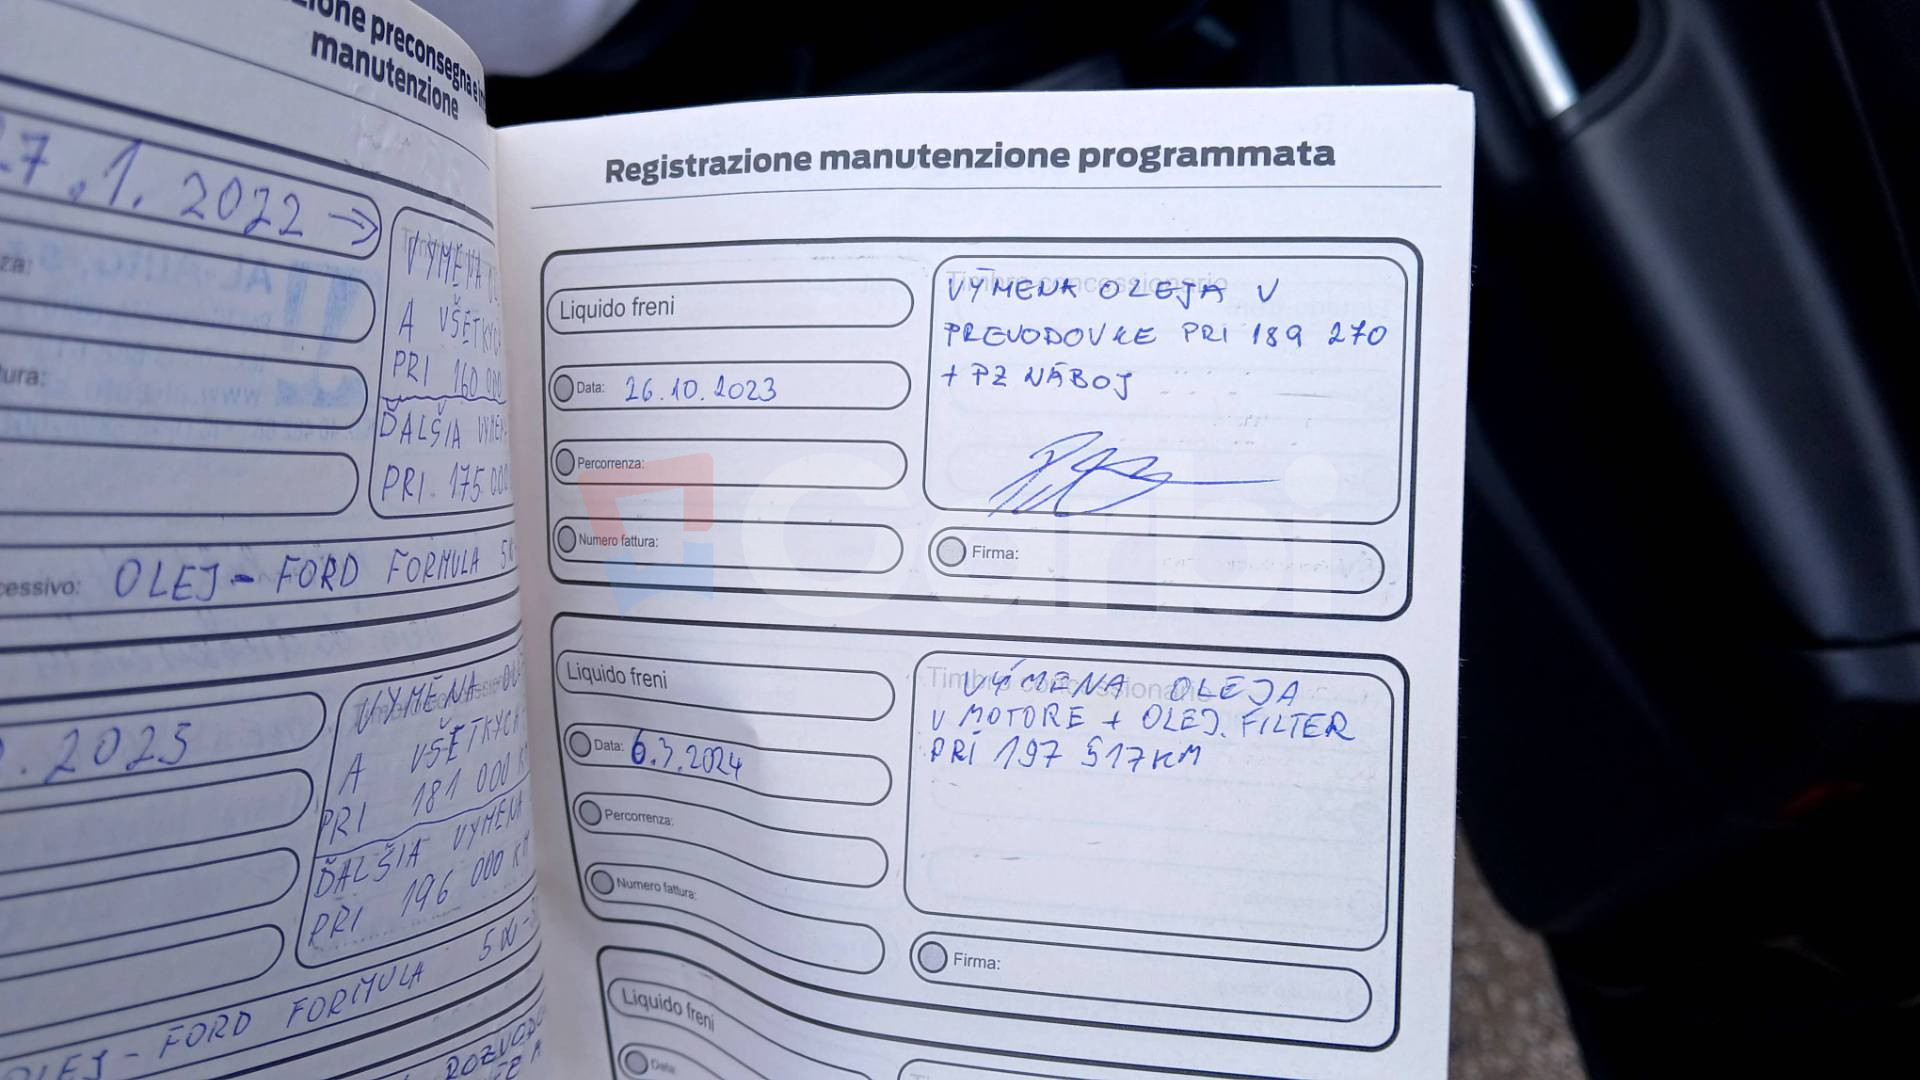 preconsegna e
manutenzione
27.1.2022 →
VÝMENA
A VŠETKÝCH
PRI 160 000
ĎALŠIA VÝMEN
PRI 175 000
OLEJ - FORD FORMULA
. 2023
VÝMENA
A VŠETKÝCH
PRI 181 000 KM
ĎALŠIA VÝMENA
PRI 196 000 KM
OLEJ - FORD FORMULA
Registrazione manutenzione programmata
Liquido freni
Data: 26.10.2023
Percorrenza:
Numero fattura:
Timbro concessionario
VÝMENA OLEJA V
PREVODOVKE PRI 189 270
+ PZ NÁBOJ
Firma:
Liquido freni
Data: 6.3.2024
Percorrenza:
Numero fattura:
Timbro concessionario
VÝMENA OLEJA
V MOTORE + OLEJ. FILTER
PRI 197 517KM
Firma:
Liquido freni
Data